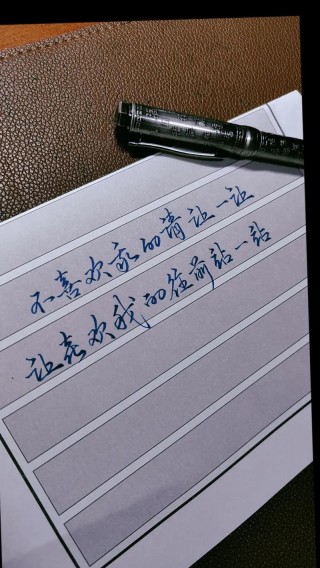 不喜欢我的请让一让
让喜欢我的往前站一站